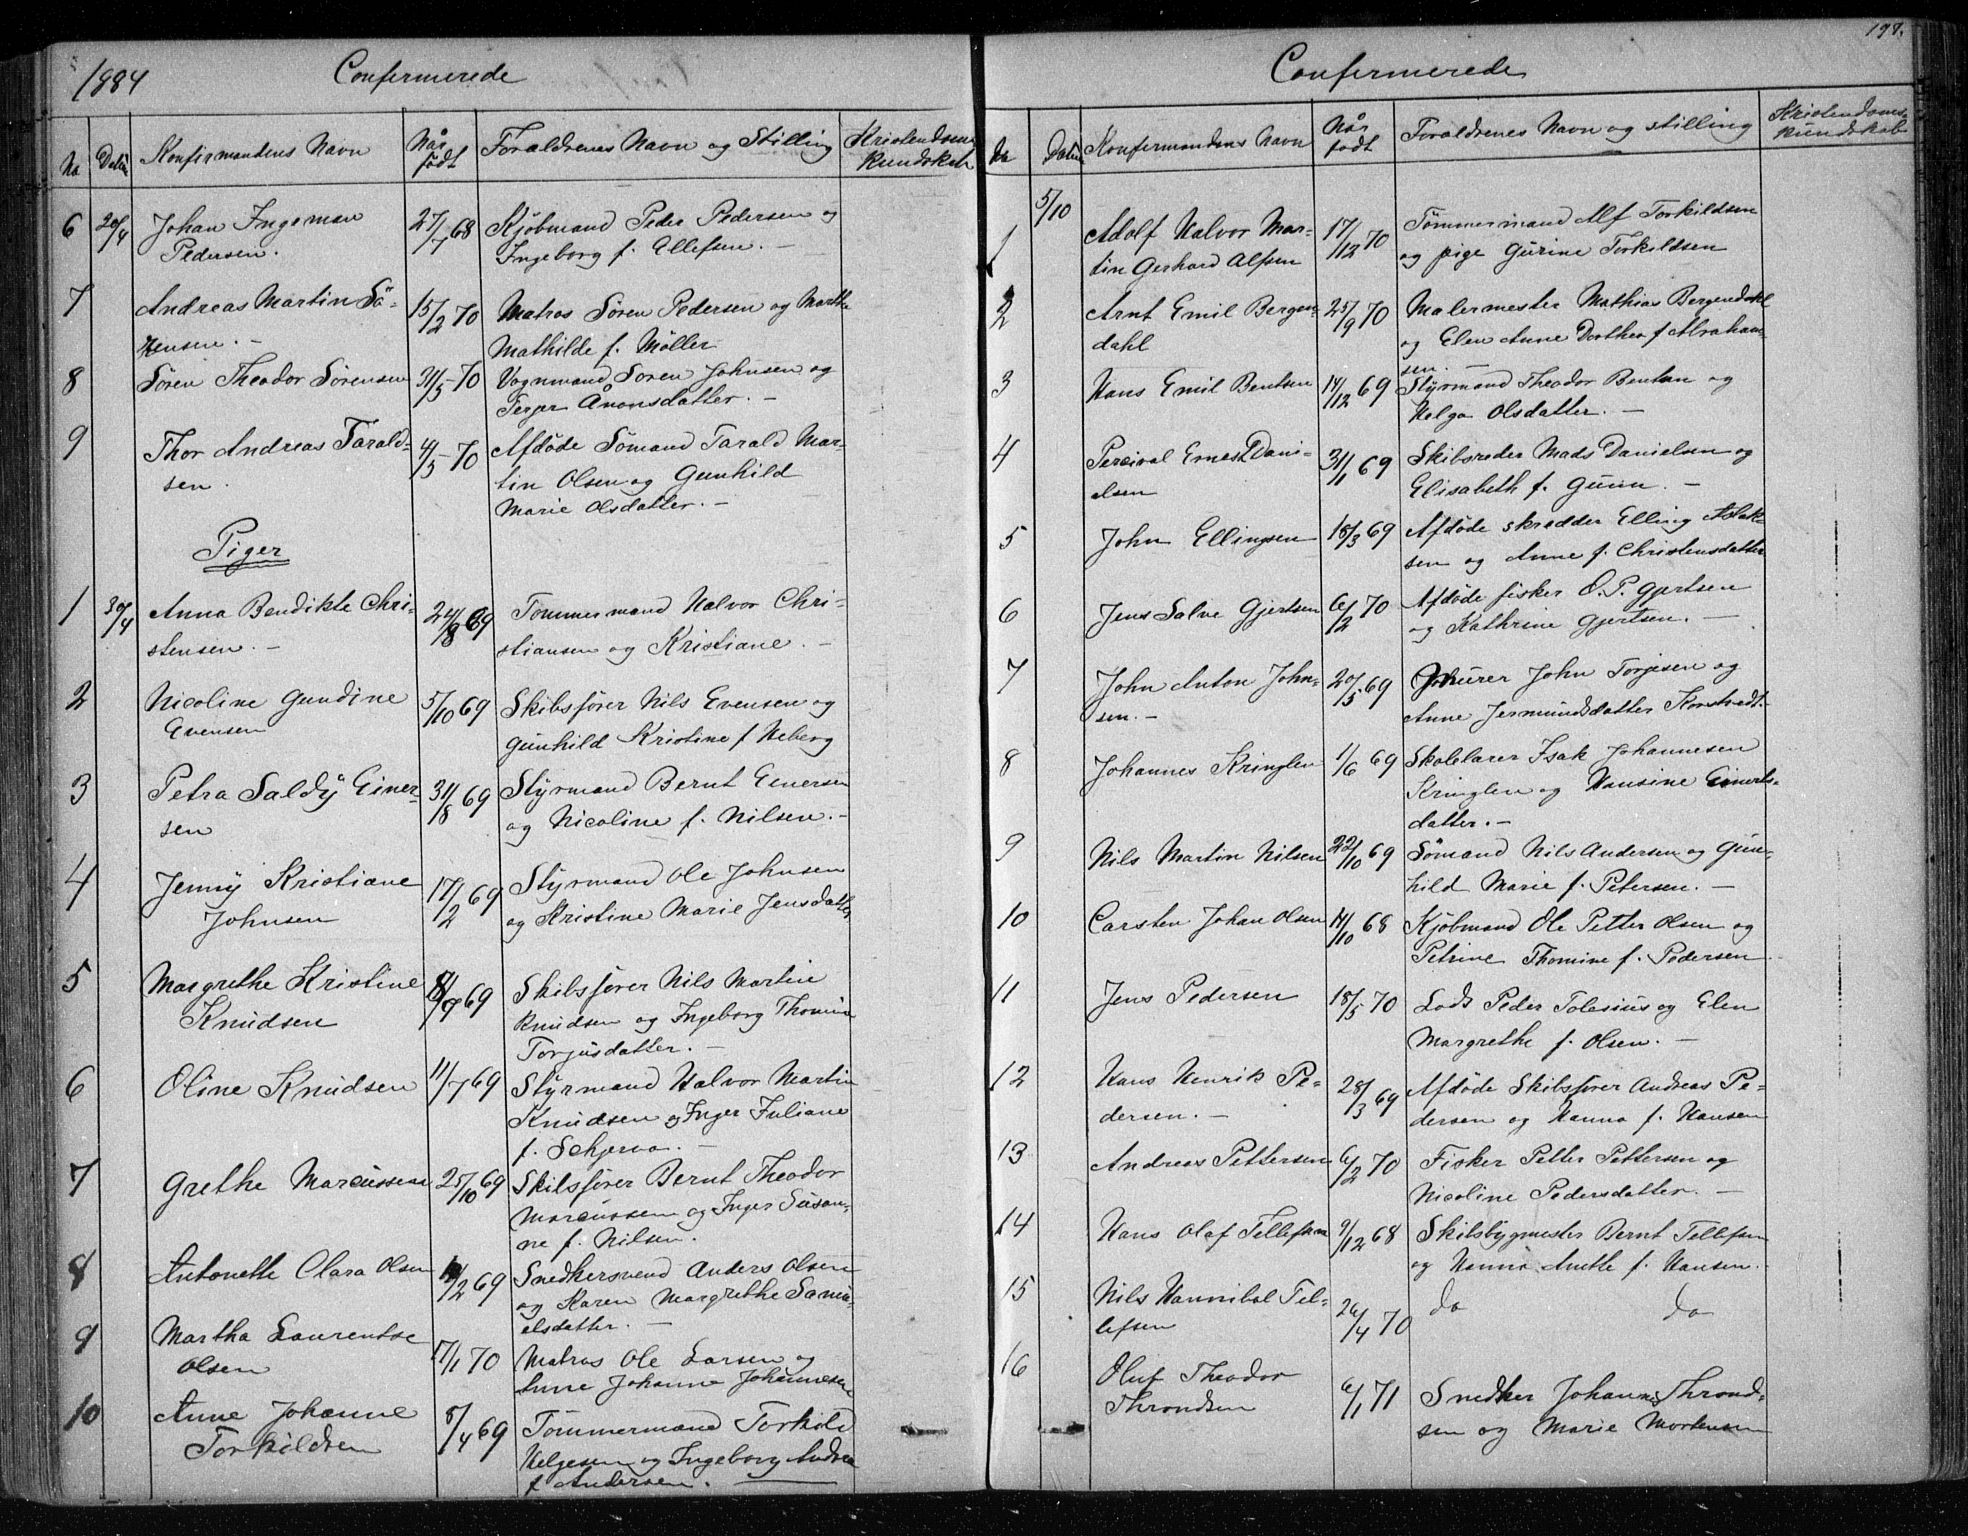 1884 Confermerede
No Datum Konfirmandens Navn Når født Forældrenes Navn og Stilling Kristendoms kundskab
6 20/4 Johan Ingeman 27/7 68 Kjöbmand Peder Pedersen og
Pedersen. Ingeborg f. Ellefsen. —
7 Andreas Martin Sö- 15/2 70 Matros Sören Pedersen og Marthe
rensen. — Mathilde f. Möller
8 Sören Theodor Sörensen 31/5 70 Vognmand Soren Johnsen og
Terjer Anonsdatter. —
9 Thor Andreas Tarald- 4/5 70 Afdöde Sömand Tarald Mar-
sen. tin Olsen og Gunhild
Marie Olsdatter. —
Piger
1 30/4 Anna Bendikte Chri- 24/8 69 Tommermand Halvor Chri-
stensen. — stiansen og Kristiane. —
2 Nicoline Gundine 5/10 69 Skibsförer Nils Evensen og
Evensen Gunhild Kristine f Heberg
3 Petra Saldy Einer- 31/8 69 Styrmand Bernt Enersen
sen og Nicoline f. Nilsen. —
4 Jenny Kristiane 17/2 69 Styrmand Ole Johnsen
Johnsen og Kristine Marie Jensdatter
5 Margrethe Kristine 8/9 69 Skibsförer Nils Martin
Knudsen Knudsen og Ingeborg Thomine
Torjusdatter. —
6 Oline Knudsen 11/7 69 Styrmand Halvor Martin
Knudsen og Inger Juliane
f. Schjerva. —
7 Grethe Marcussen 25/10 69 Skibsförer Bernt Theodor
Marcussen og Inger Susan-
ne f. Nilsen.
8 Antonette Clara Olsen /2 69 Snedkersvend Anders Olsen
og Karen Margrethe Samu-
elsdatter. —
9 Martha Laurentse 17/1 70 Matros Ole Larsen og
Olsen Anne Johanne Johannesen
10 Anne Johanne 8/4 69 Tömmermand Torkild
Torkildsen Helgesen og Ingeborg Andrea
f Andersen.
197.
Confermerede
No Datum Konfermandens Navn Når født Foraldrenes Navn og stilling Kristendoms kundskab
5/10
1 Adolf Halvor Mar- 17/12 70 Tömmermand Alf Torkildsen
tin Gerhard Alfsen og pige Gurine Torkildsen
2 Arnt Emil Bergen- 25/9 70 Malermester Mathias Bergendahl
dahl og Elen Anne Dorthea f Abraham-
sen. —
3 Hans Emil Bentsen 14/12 69 Styrmand Theodor Bentsen og
Helga Olsdatter. —
4 Percival Ernest Dani- 31/1 69 Skibsreder Mads Danielsen og
elsen Elisabeth f. Gunn. —
5 John Ellingsen 18/3 69 Afdöde skredder Elling Aslak-
sen og Anne f. Christensdatter
6 Jens Salve Gjertsen 6/2 70 Afdöde fisker O. P. Gjertsen
og Kathrine Gjertsen. —
7 John Anton John- 20/5 69 Murer John Torjesen og
sen. — Anne Jermundsdatter Korstvedt.
8 Johannes Kringlen 1/6 69 Skolelærer Isak Johannesen
Kringlen og Hansine Einerts-
datter. —
9 Nils Martin Nilsen 22/10 69 Sömand Nils Andersen og Gun-
hild Marie f. Petersen. —
10 Carsten Johan Olsen 14/10 68 Kjöbmand Ole Petter Olsen og
Petrine Thomine f. Pedersen
11 Jens Pedersen 18/5 70 Lods Peder Tolesius og Elen
Margrethe f. Olsen. —
12 Hans Henrik Pe- 28/3 69 Afdöde Skibsförer Andreas Pe-
dersen. — dersen og Hanna f. Hansen
13 Andreas Pettersen 6/2 70 Fisker Petter Pettersen og
Nicoline Pedersdatter. —
14 Hans Olaf Tellefsen 9/12 68 Skibsbygmester Bernt Tellefsen
og Hanna Anethe f. Hansen.
15 Nils Hannibal Tel- 26/4 70 do do
lefsen
16 Oluf Theodor 6/1 71 Snedker Johannes Thrond-
Throndsen sen og Marie Mortensen